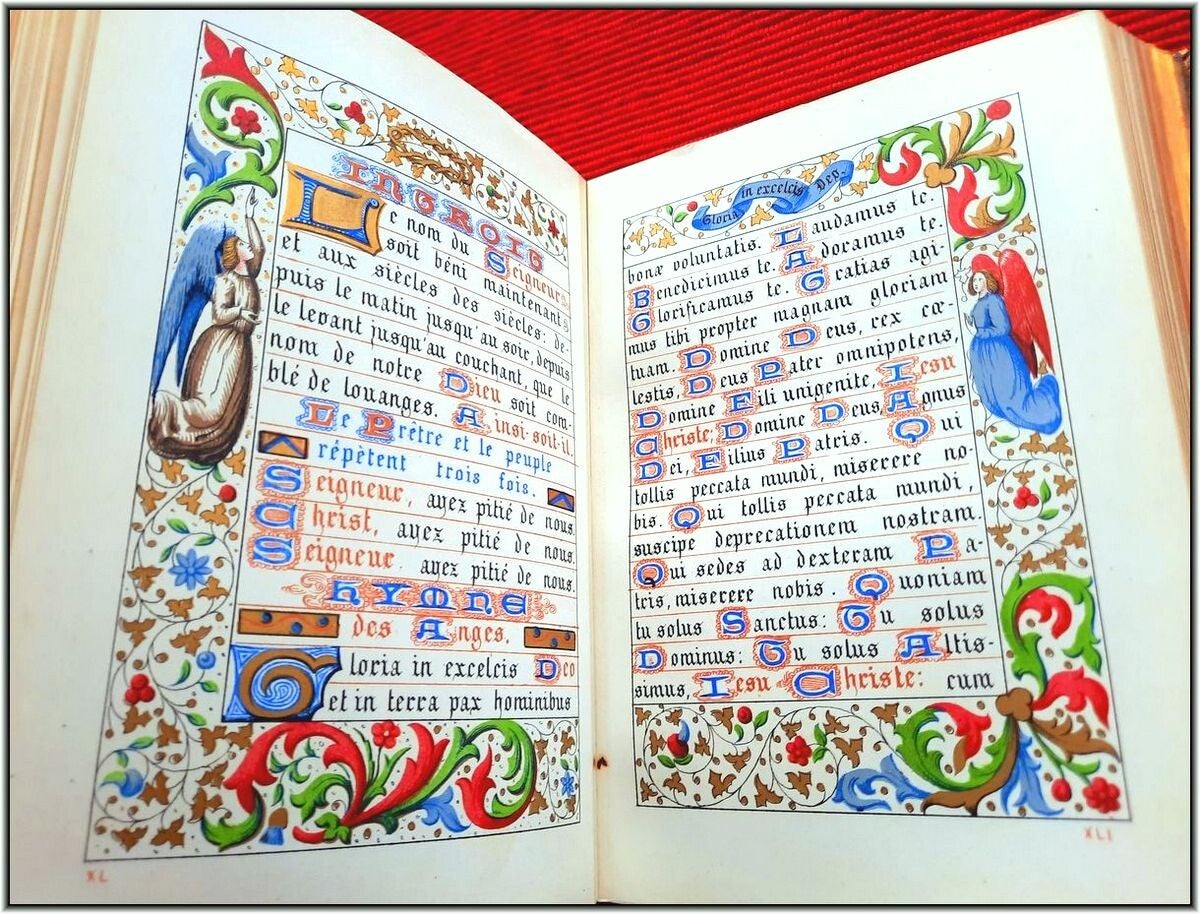 INTROIT
Le nom du Seigneur
soit béni maintenant
et aux siècles des siècles: de-
puis le matin jusqu'au soir, depuis
le levant jusqu'au couchant, que le
nom de notre Dieu soit com-
blé de louanges. Ainsi-soit-il.
Le Prêtre et le peuple
répètent trois fois.
Seigneur, ayez pitié de nous.
Christ, ayez pitié de nous.
Seigneur. ayez pitié de nous.
HYMNE
des Anges.
Gloria in excelcis Deo
et in terra pax hominibus
XL
Gloria in excelcis Deo.
bonæ voluntatis. Laudamus te.
Benedicimus te. Adoramus te.
Glorificamus te. Gratias agi-
mus tibi propter magnam gloriam
tuam. Domine Deus, rex cœ-
lestis, Deus Pater omnipotens,
Domine Fili unigenite, Iesu
Christe; Domine Deus, Agnus
Dei, Filius Patris. Qui
tollis peccata mundi, miserere no-
bis. Qui tollis peccata mundi,
suscipe deprecationem nostram.
Qui sedes ad dexteram Pa-
tris, miserere nobis. Quoniam
tu solus Sanctus: Tu solus
Dominus: Tu solus Altis-
simus, Iesu Christe: cum
XLI